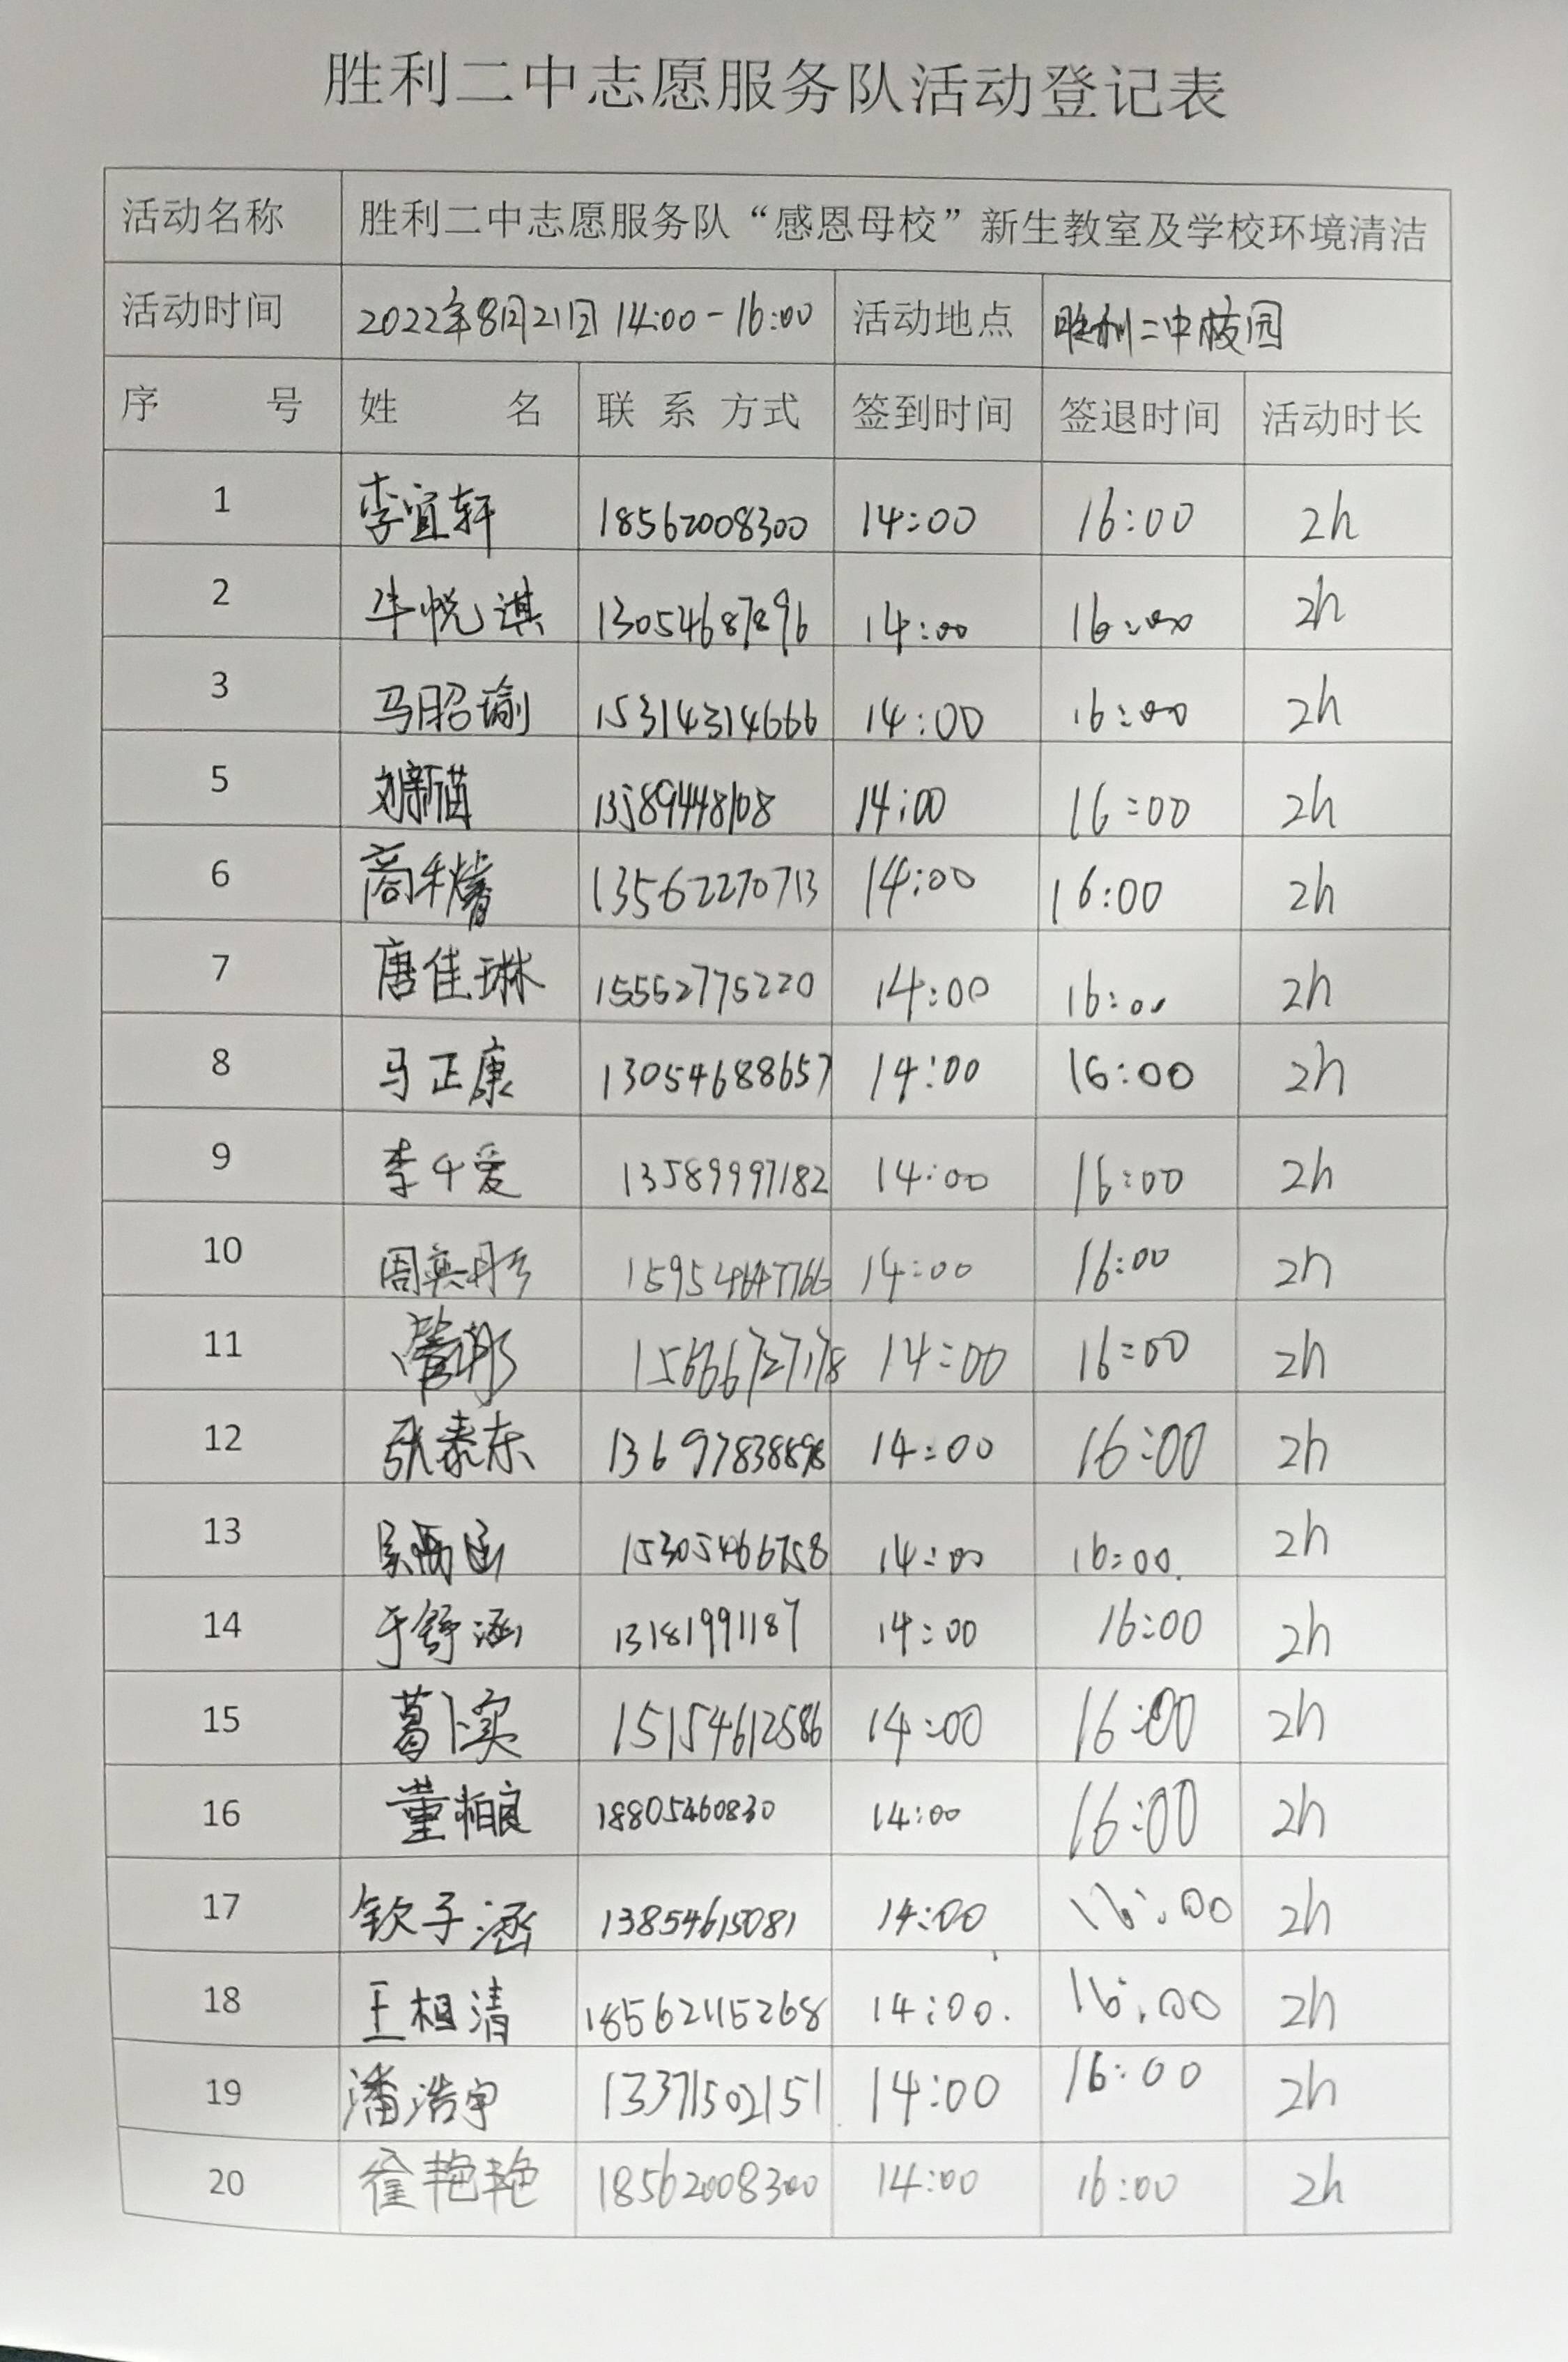 胜利二中志愿服务队活动登记表
活动名称 胜利二中志愿服务队“感恩母校”新生教室及学校环境清洁
活动时间 2022年8月21日 14:00-16:00 活动地点 胜利二中校园
序 号 姓 名 联 系 方式 签到时间 签退时间 活动时长
1 李宜轩 18562008300 14:00 16:00 2h
2 牛悦淇 13054687896 14:00 16:00 2h
3 马昭瑜 15314314666 14:00 16:00 2h
5 刘新茵 13589448108 14:00 16:00 2h
6 商 13562270713 14:00 16:00 2h
7 唐佳琳 15552775220 14:00 16:00 2h
8 马正康 13054688657 14:00 16:00 2h
9 李千爱 13589997182 14:00 16:00 2h
10 周奕彤 14:00 16:00 2h
11 14:00 16:00 2h
12 张泰东 13697838898 14:00 16:00 2h
13 吴禹函 15305466758 14:00 16:00 2h
14 于舒涵 13181991187 14:00 16:00 2h
15 葛卜实 15154612586 14:00 16:00 2h
16 董柏良 18805460830 14:00 16:00 2h
17 钦子涵 13854615081 14:00 16:00 2h
18 王相清 18562115268 14:00. 16:00 2h
19 潘浩宇 13371502151 14:00 16:00 2h
20 崔艳艳 18562008300 14:00 16:00 2h